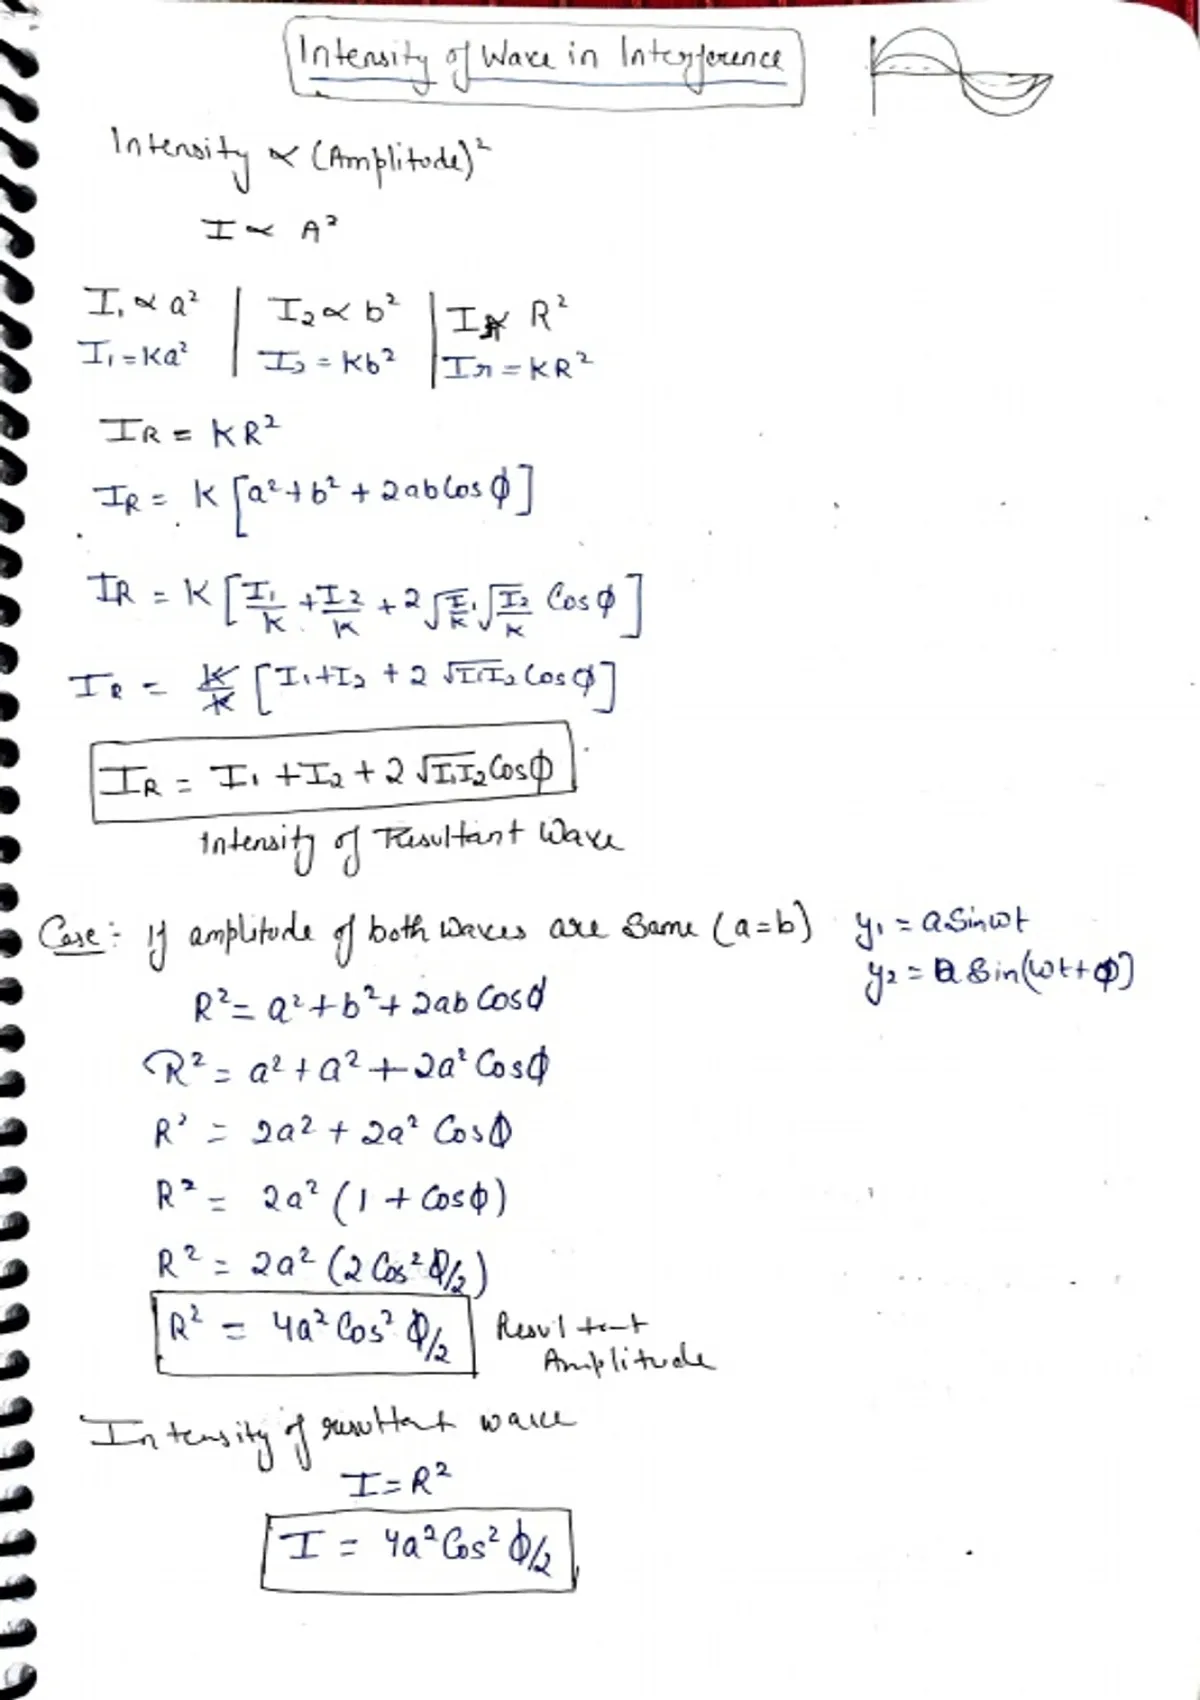 Intensity of Wave in Interference
Intensity ∝ (Amplitude)²
I ∝ A²
I₁ ∝ a² | I₂ ∝ b² | I ∝ R²
I₁ = Ka² | I₂ = Kb² | Ir = KR²
IR = KR²
IR = K [a² + b² + 2ab Cos ϕ]
IR = K [I₁/K + I₂/K + 2 √I₁/K √I₂/K Cos ϕ]
IR = K/K [I₁ + I₂ + 2 √I₁I₂ Cos ϕ]
IR = I₁ + I₂ + 2 √I₁I₂ Cos ϕ
Intensity of Resultant Wave
Case :- If amplitude of both waves are same (a=b) y₁ = a Sin ωt
y₂ = a Sin(ωt + ϕ)
R² = a² + b² + 2ab Cos ϕ
R² = a² + a² + 2a² Cos ϕ
R² = 2a² + 2a² Cos ϕ
R² = 2a² (1 + Cos ϕ)
R² = 2a² (2 Cos² ϕ/2)
R² = 4a² Cos² ϕ/2 Resultant
Amplitude
Intensity of resultant wave
I = R²
I = 4a² Cos² ϕ/2